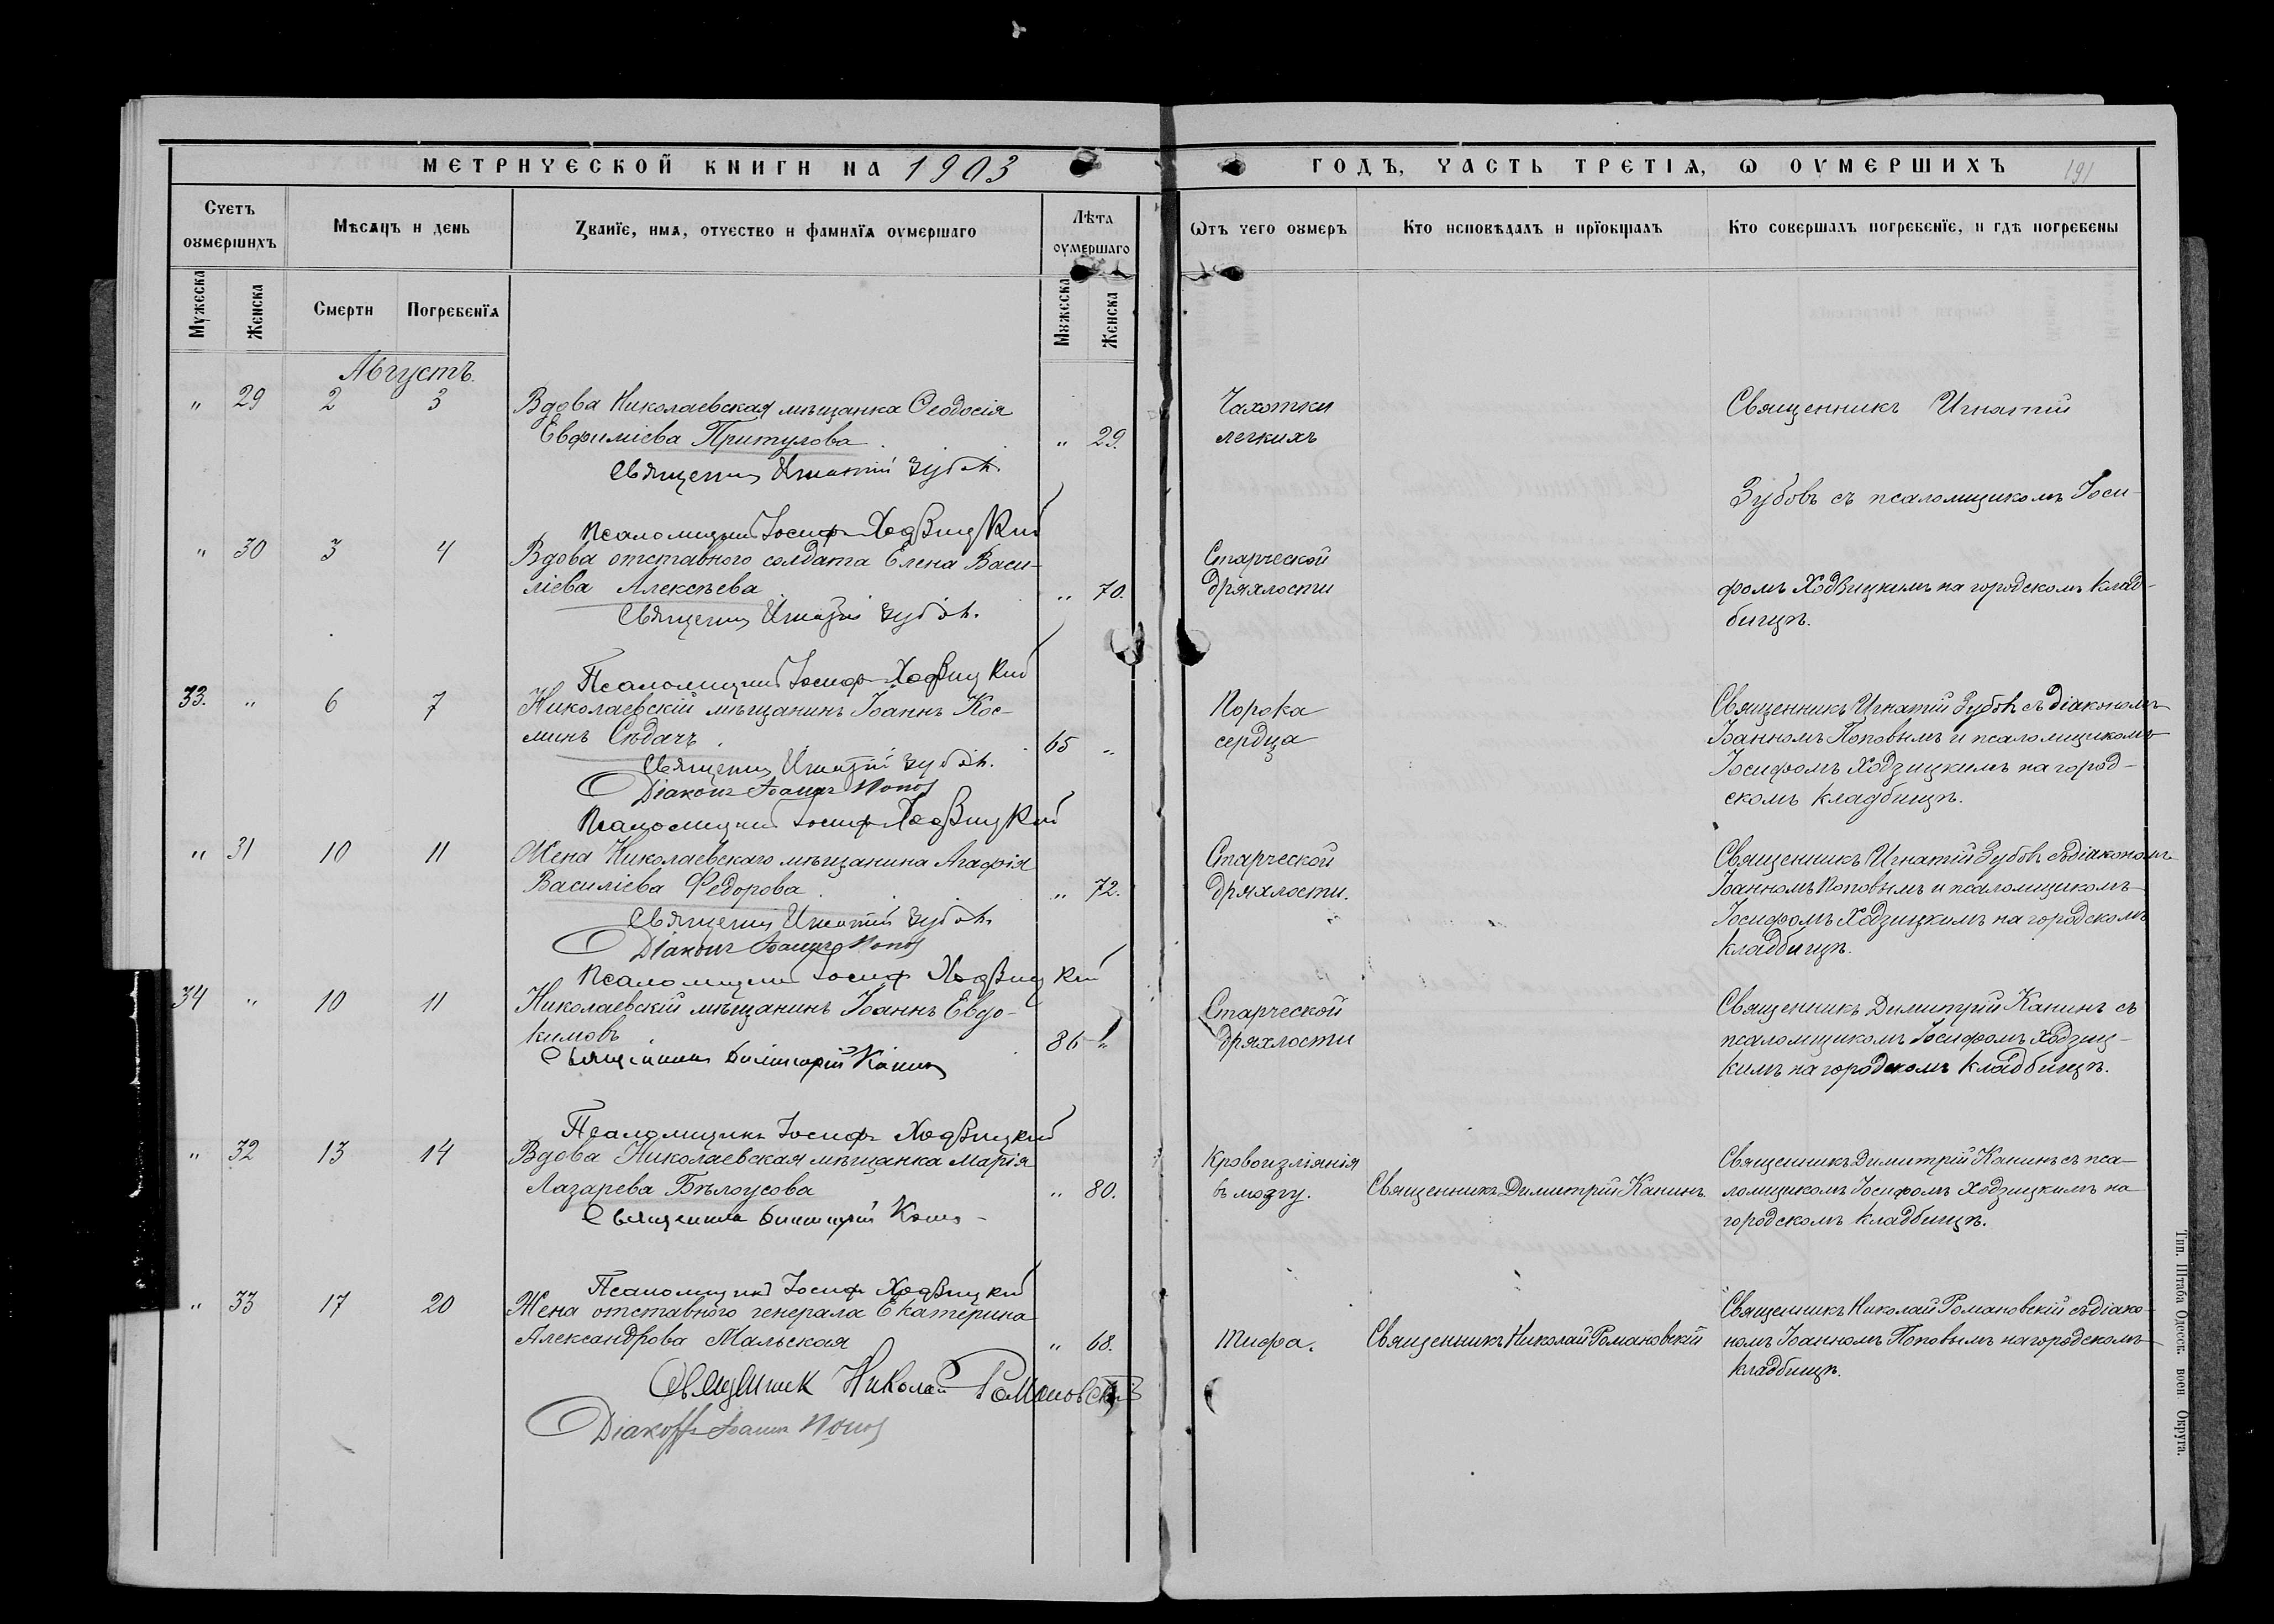 МЕТРИЧЕСКОЙ КНИГИ НА 1903
ГОДЪ, ЧАСТЬ ТРЕТІѦ, Ѡ ОУМЕРШИХЪ 191
Счетъ оумершихъ
Мѣсяцъ и день
Званїе, имѧ, отчество и фамилїѧ оумершаго
Лѣта оумершаго
Ѿтъ чего оумеръ
Кто исповѣдалъ и прїобщалъ
Кто совершалъ погребенїе, и гдѣ погребены
Мужеска
Женска
Смерти
Погребенїѧ
Мужеска
Женска
Августъ.
" 29 2 3 Вдова Николаевская мѣщанка Ѳеодосія
Евфиміева Притулова " 29.
Чахотки
легкихъ
Священникъ Игнатій
Зубовъ съ псаломщикомъ Іоси-
фомъ Ходзицкимъ на городскомъ клад-
бищѣ.
Священникъ Игнатій Зубовъ.
Псаломщикъ Іосифъ Ходзицкій
" 30 3 4 Вдова отставного солдата Елена Васи-
ліева Алексѣева " 70.
Старческой
дряхлости
Священникъ Игнатій Зубовъ.
Псаломщикъ Іосифъ Ходзицкій
33. " 6 7 Николаевскій мѣщанинъ Іоаннъ Кос-
минъ Сѣдачъ. 65 "
Порока
сердца
Священникъ Игнатій Зубовъ съ діакономъ
Іоанномъ Поповымъ и псаломщикомъ
Іосифомъ Ходзицкимъ на город-
скомъ кладбищѣ.
Священникъ Игнатій Зубовъ.
Діаконъ Іоаннъ Поповъ
Псаломщикъ Іосифъ Ходзицкій
" 31 10 11 Жена Николаевскаго мѣщанина Агафія
Василіева Федорова " 72.
Старческой
дряхлости.
Священникъ Игнатій Зубовъ съ діакономъ
Іоанномъ Поповымъ и псаломщикомъ
Іосифомъ Ходзицкимъ на городскомъ
кладбищѣ.
Священникъ Игнатій Зубовъ
Діаконъ Іоаннъ Поповъ
Псаломщикъ Іосифъ Ходзицкій
34 " 10 11 Николаевскій мѣщанинъ Іоаннъ Евдо-
кимовъ 86 "
Старческой
дряхлости
Священникъ Димитрій Канинъ съ
псаломщикомъ Іосифомъ Ходзиц-
кимъ на городскомъ кладбищѣ.
Священникъ Димитрій Канинъ
Псаломщикъ Іосифъ Ходзицкій
" 32 13 14 Вдова Николаевская мѣщанка Марія
Лазарева Бѣлоусова " 80.
Кровоизліянія
въ мозгу.
Священникъ Димитрій Канинъ.
Священникъ Димитрій Канинъ съ пса-
ломщикомъ Іосифомъ Ходзицкимъ на
городскомъ кладбищѣ.
Священникъ Димитрій Канинъ
Псаломщикъ Іосифъ Ходзицкій
" 33 17 20 Жена отставного генерала Екатерина
Александрова Мальская " 68.
Тифа.
Священникъ Николай Романовскій
Священникъ Николай Романовскій съ діако-
номъ Іоанномъ Поповымъ на городскомъ
кладбищѣ.
Священник Николай Романовскій
Діаконъ Іоаннъ Поповъ
Тип. Штаба Одесск. воен Округа.